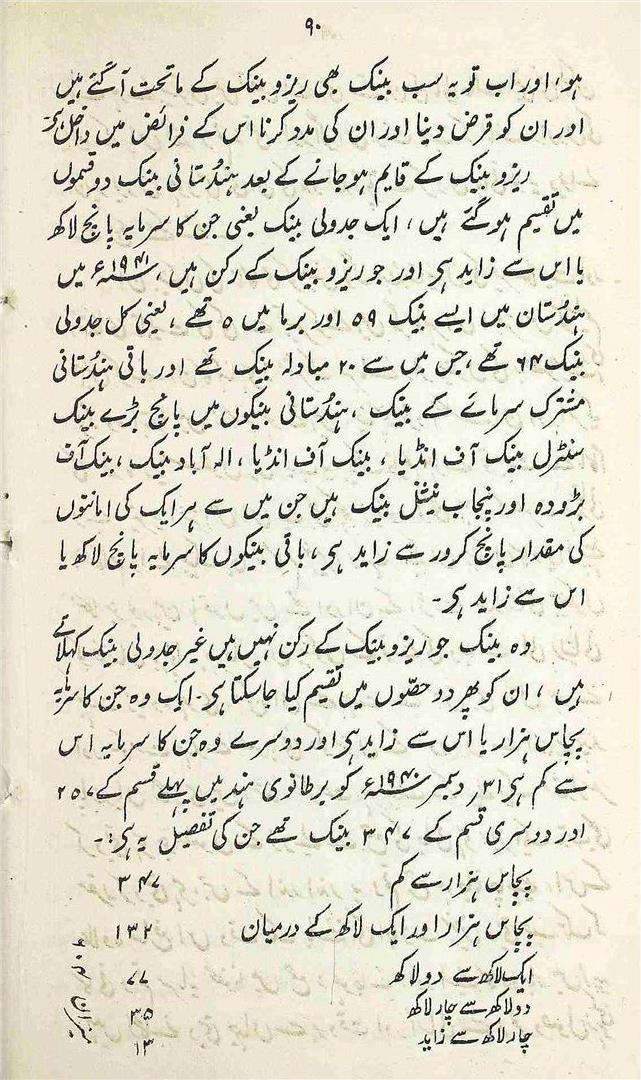 ۹۰
ہو، اور اب تو یہ سب بینک بھی ریزو بینک کے ماتحت آ گئے ہیں
اور ان کو قرض دینا اور ان کی مدد کرنا اس کے فرائض میں داخل ہی۔
ریزو بینک کے قایم ہو جانے کے بعد ہندُستانی بینک دو قسموں
میں تقسیم ہو گئے ہیں، ایک جدولی بینک یعنی جن کا سرمایہ پانچ لاکھ
یا اس سے زاید ہی اور جو ریزو بینک کے رکن ہیں، ۱۹۴۱ء میں
ہندُستان میں ایسے بینک ۵۹ اور برما میں ۵ تھے، یعنی کل جدولی
بینک ۶۴ تھے، جس میں سے ۲۰ مبادلہ بینک تھے اور باقی ہندُستانی
مشترک سرمائے کے بینک، ہندُستانی بینکوں میں پانچ بڑے بینک
سنٹرل بینک آف انڈیا، بینک آف انڈیا، الہ آباد بینک، بینک آف
بڑودہ اور پنجاب نیشنل بینک ہیں جن میں سے ہر ایک کی امانتوں
کی مقدار پانچ کرور سے زاید ہی، باقی بینکوں کا سرمایہ پانچ لاکھ یا
اس سے زاید ہی۔
وہ بینک جو ریزو بینک کے رکن نہیں ہیں غیر جدولی بینک کہلاتے
ہیں، ان کو پھر دو حصّوں میں تقسیم کیا جا سکتا ہی۔ ایک وہ جن کا سرمایہ
پچاس ہزار یا اس سے زاید ہی اور دوسرے وہ جن کا سرمایہ اس
سے کم ہی ۳۱ دسمبر ۱۹۴۰ء کو برطانوی ہند میں پہلے قسم کے ۲۵۷
اور دوسری قسم کے ۳۴۷ بینک تھے جن کی تفصیل یہ ہی:۔
پچاس ہزار سے کم ۳۴۷
پچاس ہزار اور ایک لاکھ کے درمیان ۱۳۲
ایک لاکھ سے دو لاکھ ۷۷
دو لاکھ سے چار لاکھ ۳۵
چار لاکھ سے زاید ۱۳
میزان ۶۰۴